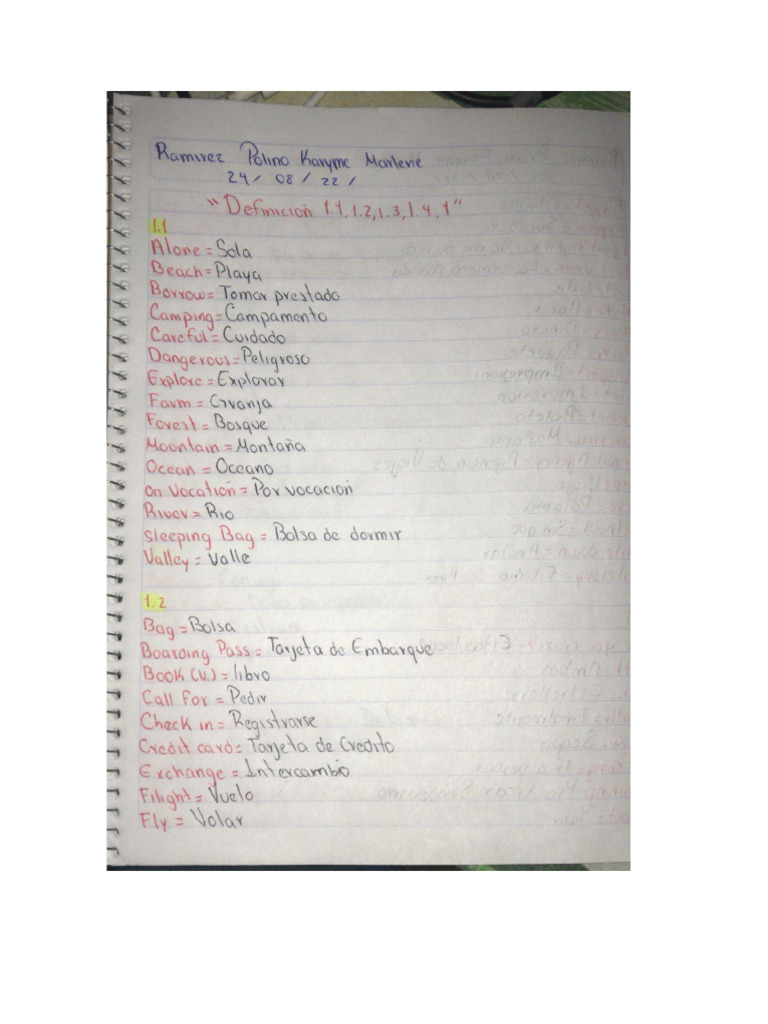 Ramirez Polino Karyme Marlene
24/ 08 / 22 /
"Definicion 1.1, 1.2, 1.3, 1.4, 1"
1.1
Alone = Sola
Beach = Playa
Borrow = Tomar prestado
Camping = Campamento
Careful = Cuidado
Dangerous = Peligroso
Explore = Explorar
Farm = Granja
Forest = Bosque
Mountain = Montaña
Ocean = Oceano
on Vocation = Por vocación
River = Rio
Sleeping Bag = Bolsa de dormir
Valley = Valle
1.2
Bag = Bolsa
Boarding Pass = Tarjeta de Embarque
Book (v.) = libro
Call For = Pedir
Check in = Registrarse
Credit card = Tarjeta de Credito
Exchange = Intercambio
Filight = Vuelo
Fly = Volar